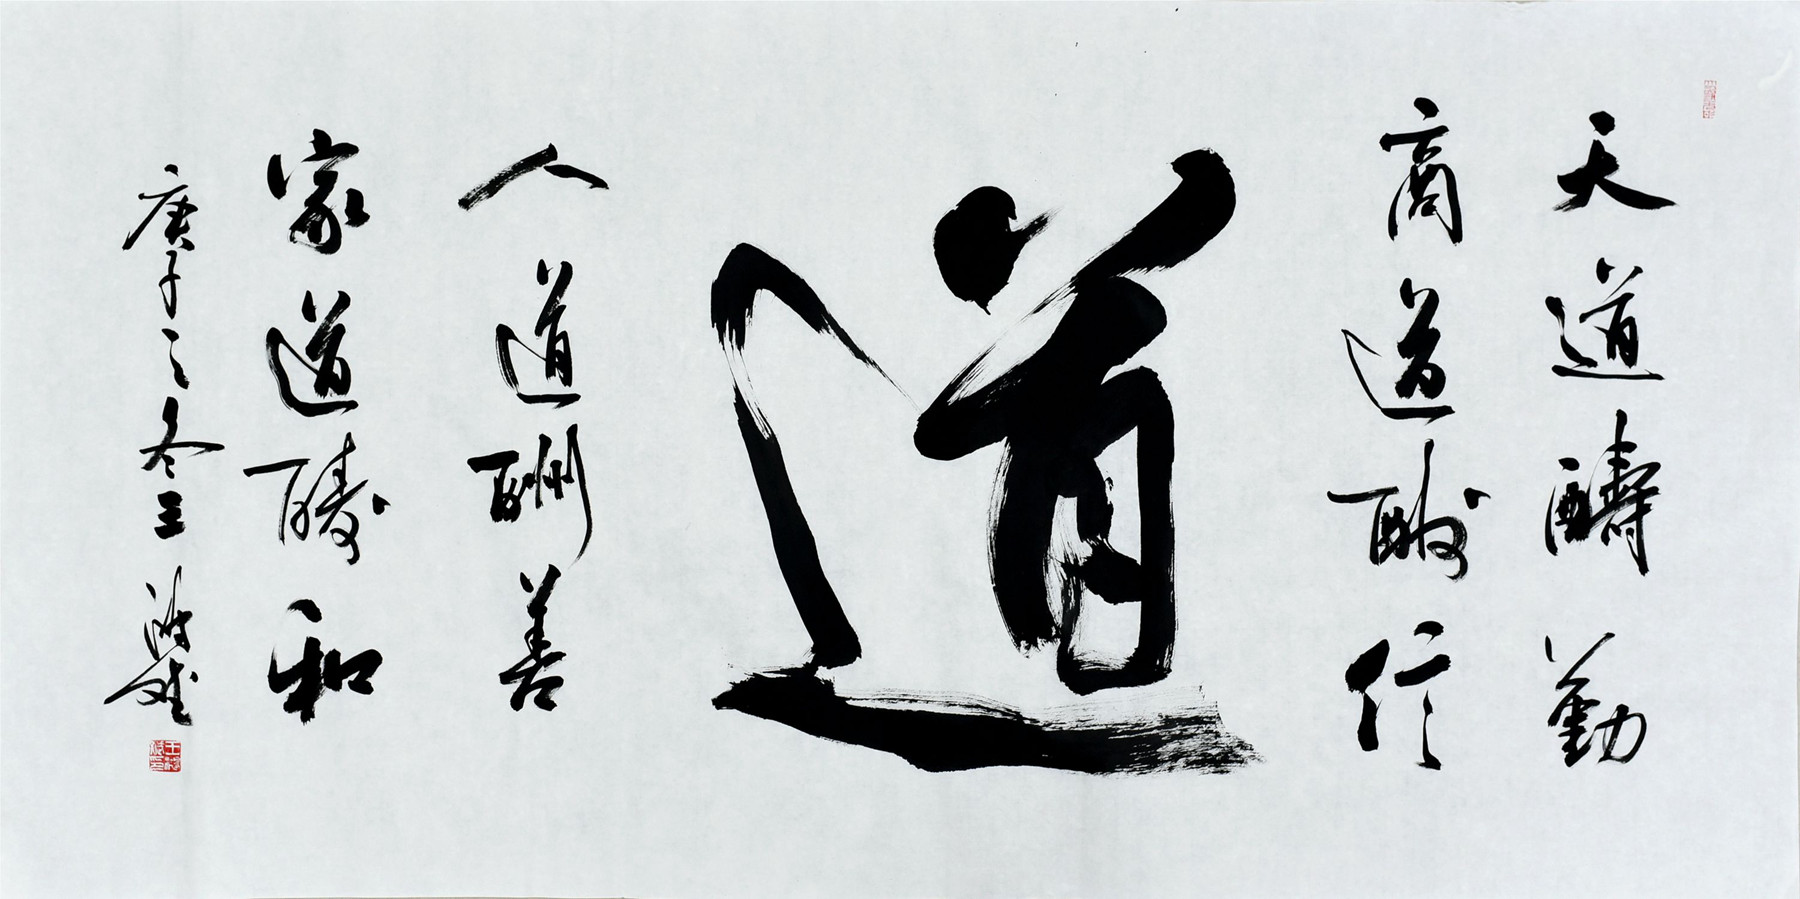 天道醻勤
商道酬信
道
人道酬善
家道酬和
庚子之冬王